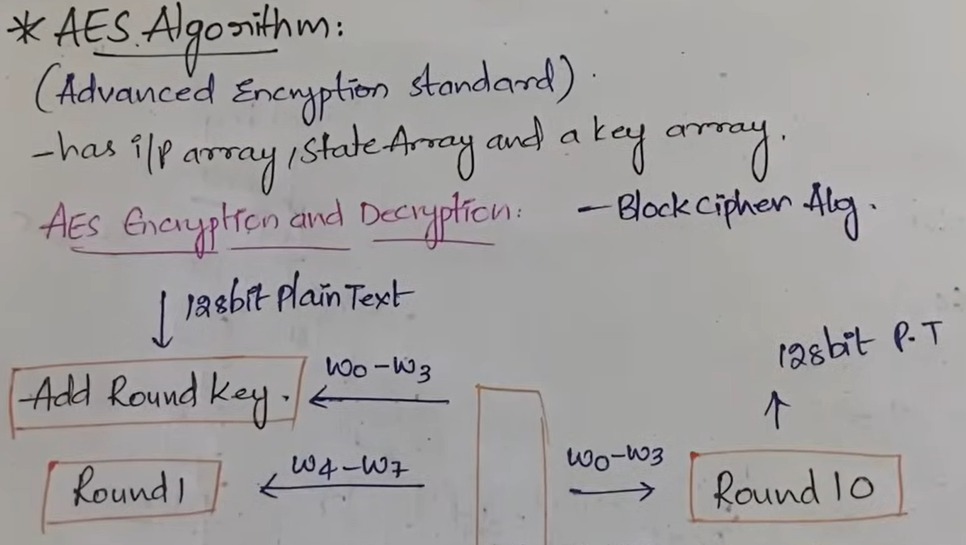 * AES Algorithm:
(Advanced Encryption Standard).
- has i/p array, State Array and a key array.
AES Encryption and Decryption: - Block cipher Alg.
↓ 128bit Plain Text
128bit P.T
Add Round key. ← W0-W3
↑
Round 1 ← W4-W7
W0-W3 → Round 10